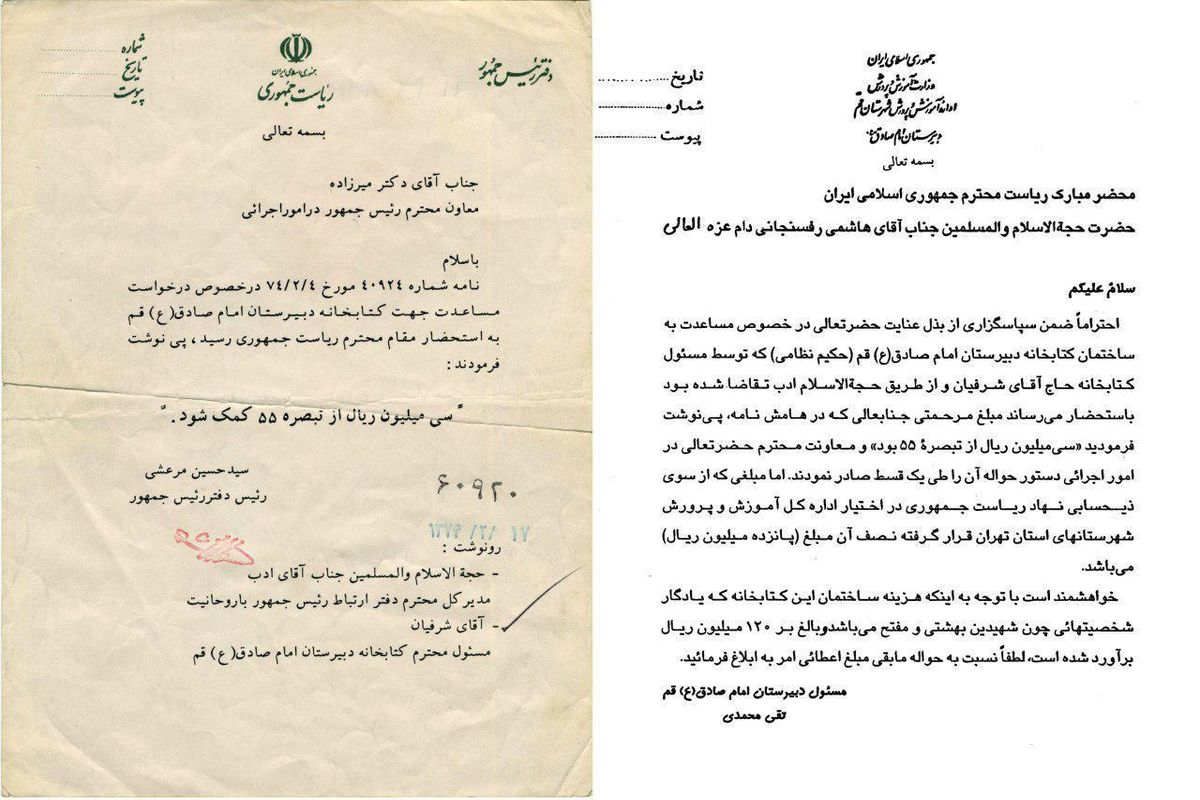 دفتر رئیس جمهور
جمهوری اسلامی ایران
ریاست جمهوری
شماره
تاریخ
پیوست
بسمه تعالی
جناب آقای دکتر میرزاده
معاون محترم رئیس جمهور درامور اجرائی
باسلام
نامه شماره ۴۰۹۲۴ مورخ ۷۴/۲/۴ درخصوص درخواست
مساعدت جهت کتابخانه دبیرستان امام صادق(ع) قم
به استحضار مقام محترم ریاست جمهوری رسید، پی نوشت
فرمودند:
"سی میلیون ریال از تبصره ۵۵ کمک شود."
سیدحسین مرعشی
رئیس دفتر رئیس جمهور
۶۰۹۲۰
۱۳۷۴/۲/۱۷
رونوشت:
- حجة الاسلام والمسلمین جناب آقای ادب
مدیرکل محترم دفتر ارتباط رئیس جمهور باروحانیت
- آقای شرفیان
مسئول محترم کتابخانه دبیرستان امام صادق(ع) قم
جمهوری اسلامی ایران
وزارت آموزش و پرورش
اداره آموزش و پرورش شهرستان قم
دبیرستان امام صادق
تاریخ
شماره
پیوست
بسمه تعالی
محضر مبارک ریاست محترم جمهوری اسلامی ایران
حضرت حجةالاسلام والمسلمین جناب آقای هاشمی رفسنجانی دام عزه العالی
سلام علیکم
احتراماً ضمن سپاسگزاری از بذل عنایت حضرتعالی در خصوص مساعدت به
ساختمان کتابخانه دبیرستان امام صادق(ع) قم (حکیم نظامی) که توسط مسئول
کتابخانه حاج آقای شرفیان و از طریق حجةالاسلام ادب تقاضا شده بود
باستحضار می‌رساند مبلغ مرحمتی جنابعالی که در هامش نامه، پی‌نوشت
فرمودید «سی‌میلیون ریال از تبصرهٔ ۵۵ بود» و معاونت محترم حضرتعالی در
امور اجرائی دستور حواله آن را طی یک قسط صادر نمودند. اما مبلغی که از سوی
ذیحسابی نهاد ریاست جمهوری در اختیار اداره کل آموزش و پرورش
شهرستانهای استان تهران قرار گرفته نصف آن مبلغ (پانزده میلیون ریال)
می‌باشد.
خواهشمند است با توجه به اینکه هزینه ساختمان این کتابخانه که یادگار
شخصیتهائی چون شهیدین بهشتی و مفتح می‌باشدوبالغ بر ۱۲۰ میلیون ریال
برآورد شده است، لطفاً نسبت به حواله مابقی مبلغ اعطائی امر به ابلاغ فرمائید.
مسئول دبیرستان امام صادق(ع) قم
تقی محمدی